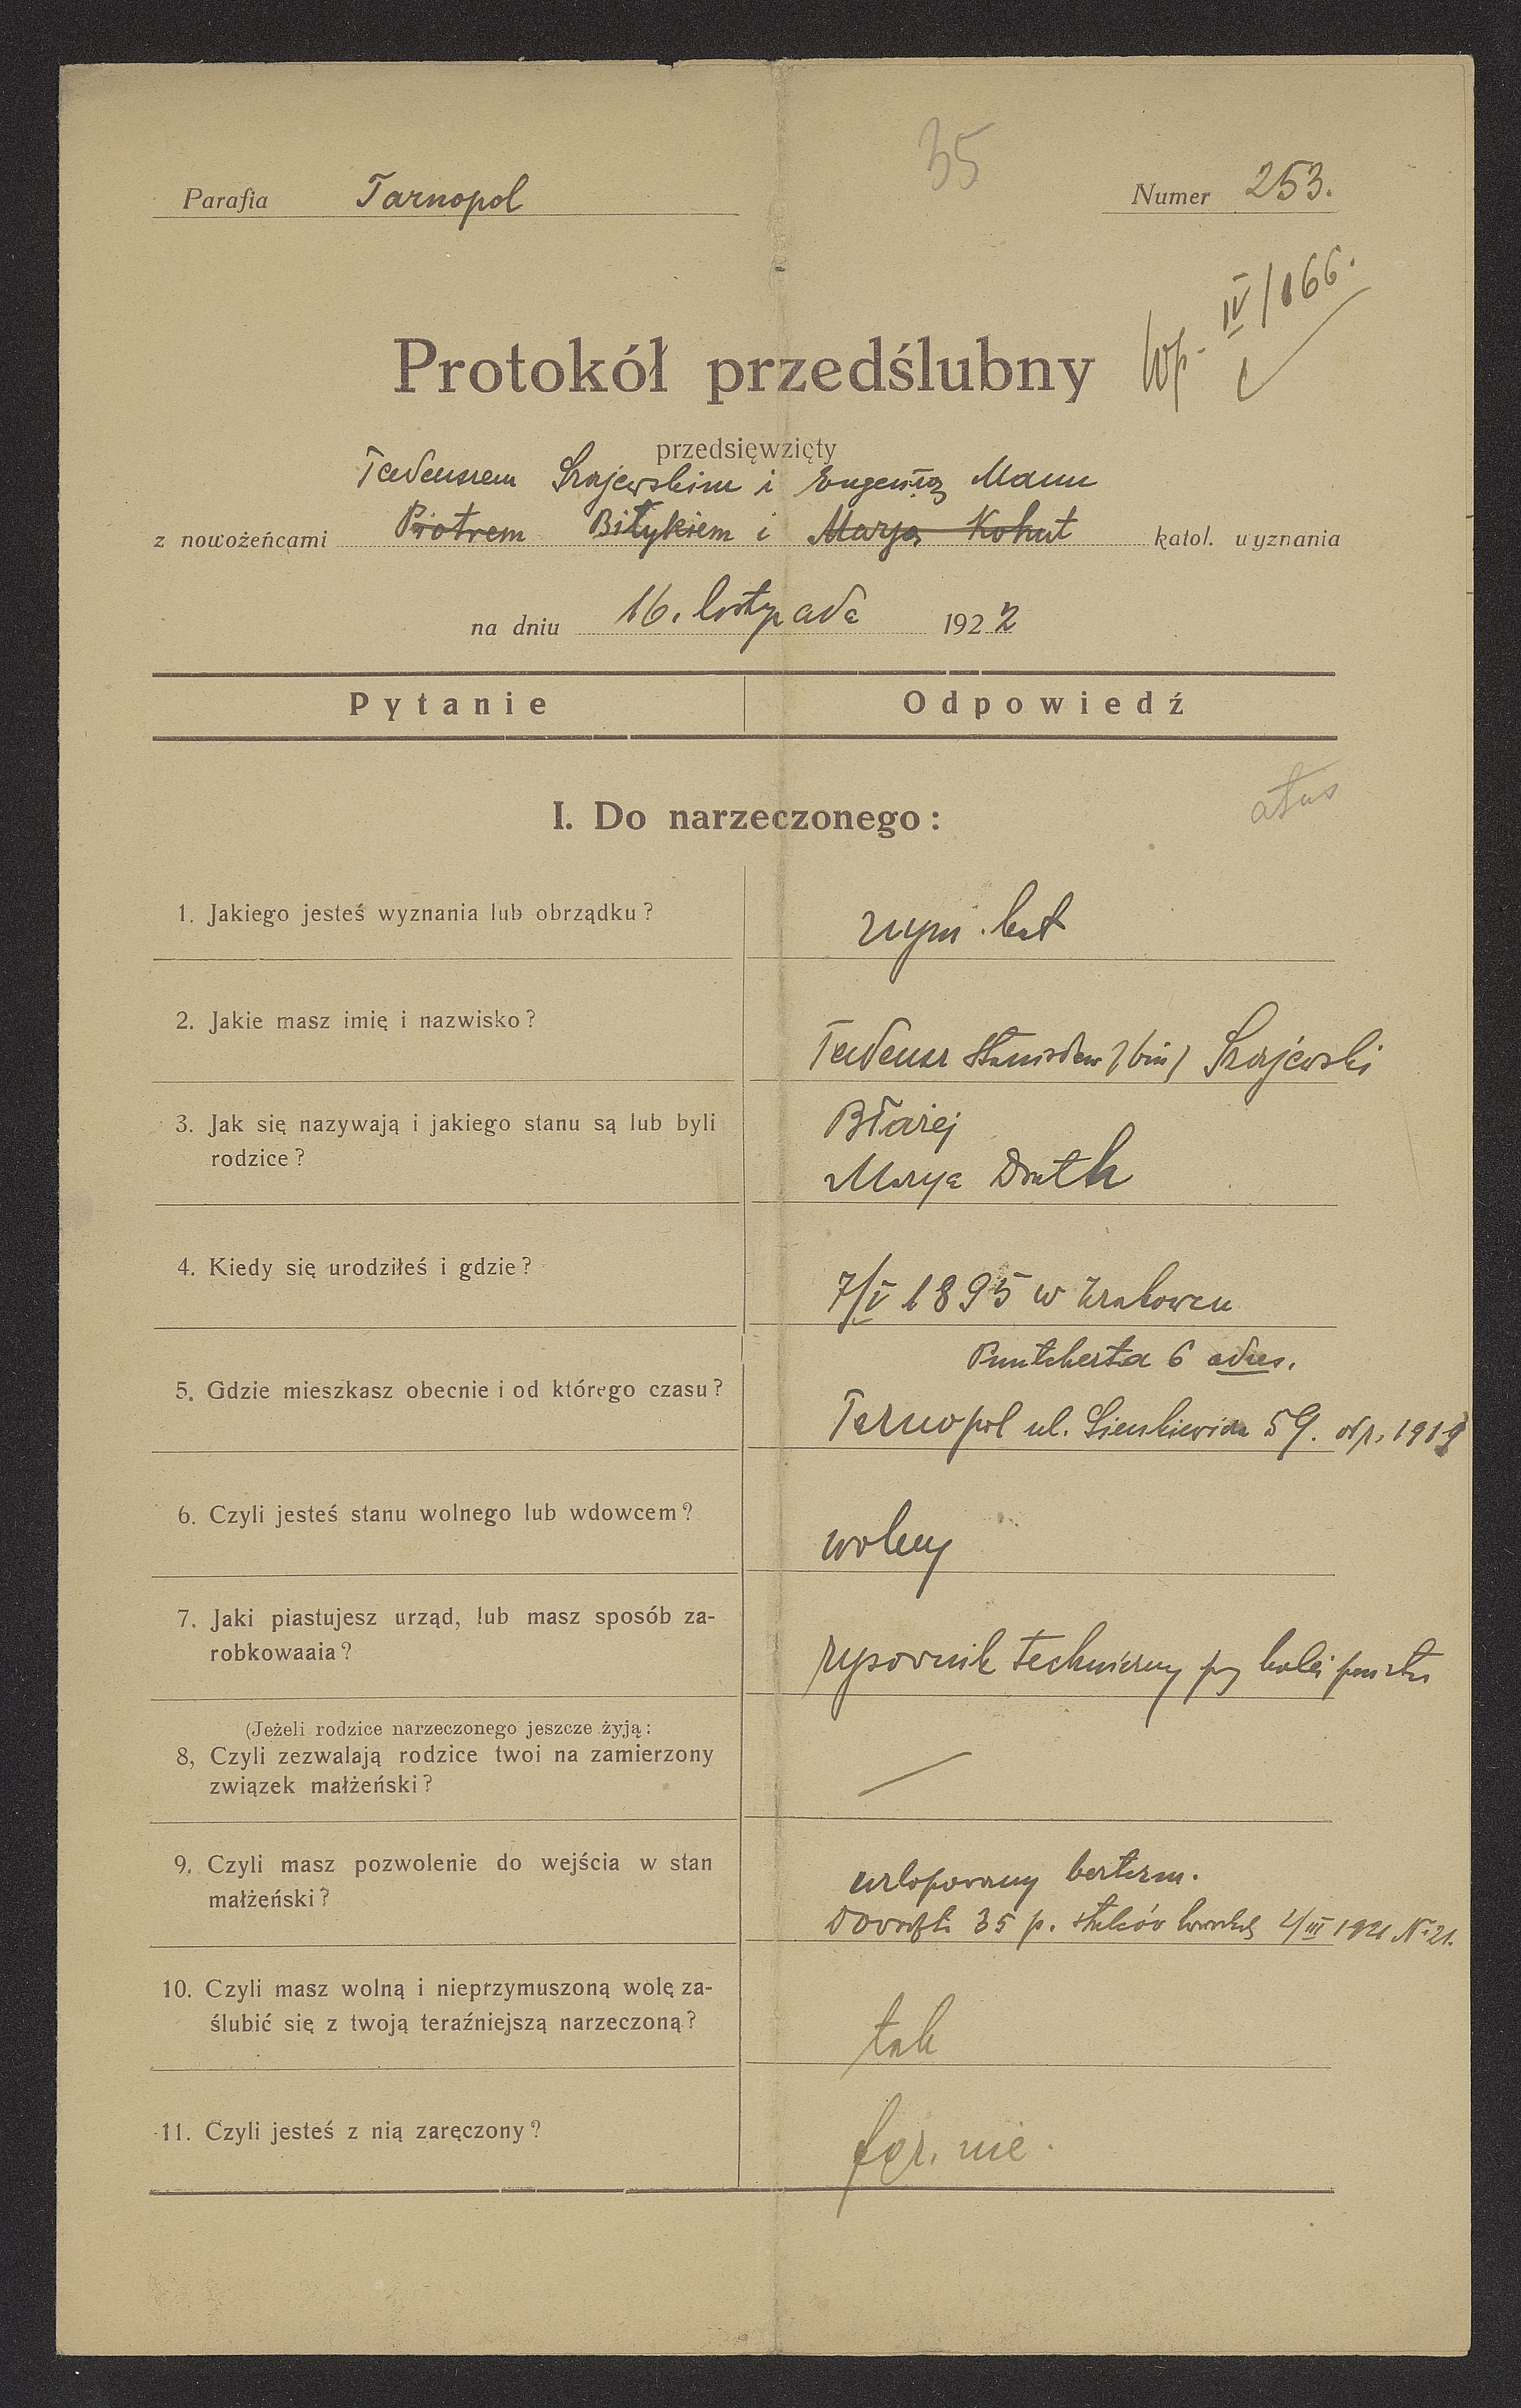 35
Parafia Tarnopol
Numer 253.
Wp. IV/166.
Protokół przedślubny
przedsięwzięty
Tadeuszem Szajewskim i Eugenią Mann
z nowożeńcami Piotrem Biłykiem i Maryą Kohut katol. wyznania
na dniu 16. listopada 1922
Pytanie Odpowiedź
I. Do narzeczonego:
1. Jakiego jesteś wyznania lub obrządku?
rzym. kat
2. Jakie masz imię i nazwisko?
Tadeusz Stanisław (bin) Szajewski
3. Jak się nazywają i jakiego stanu są lub byli
rodzice?
Błażej
Marya
4. Kiedy się urodziłeś i gdzie?
7/V 1895 w Krakowcu
5. Gdzie mieszkasz obecnie i od którego czasu?
Puntscherta 6 adres.
Tarnopol ul. Sienkiewicza 59. od p. 1919
6. Czyli jesteś stanu wolnego lub wdowcem?
wolny
7. Jaki piastujesz urząd, lub masz sposób za-
robkowaaia?
rysownik techniczny przy kolei państw
(Jeżeli rodzice narzeczonego jeszcze żyją:
8, Czyli zezwalają rodzice twoi na zamierzony
związek małżeński?
—
9. Czyli masz pozwolenie do wejścia w stan
małżeński?
urlopowany bezterm.
35 p. 1921 No 21.
10. Czyli masz wolną i nieprzymuszoną wolę za-
ślubić się z twoją teraźniejszą narzeczoną?
tak
11. Czyli jesteś z nią zaręczony?
for. nie.